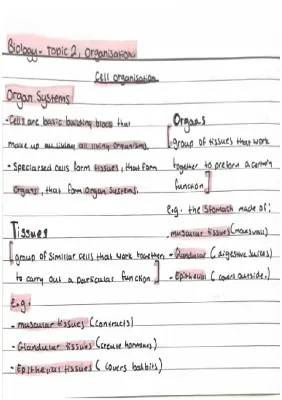 Biology - Topic 2, Organisation
Cell organisation
Organ Systems
- Cells are basic building blocks that
make up all living all living organisms.
- Specialised cells form tissues, that form
organs, that form organ systems.
Organs
[group of tissues that work
together to preform a certain
function]
e.g. the stomach made of:
- muscular tissues
- Glandular (digestive juices)
- Epithelial (covers outside)
Tissues
[group of similar cells that work together
to carry out a particular function]
e.g.
- muscular tissues (contracts)
- Glandular tissues
- Epithelial tissues (covers